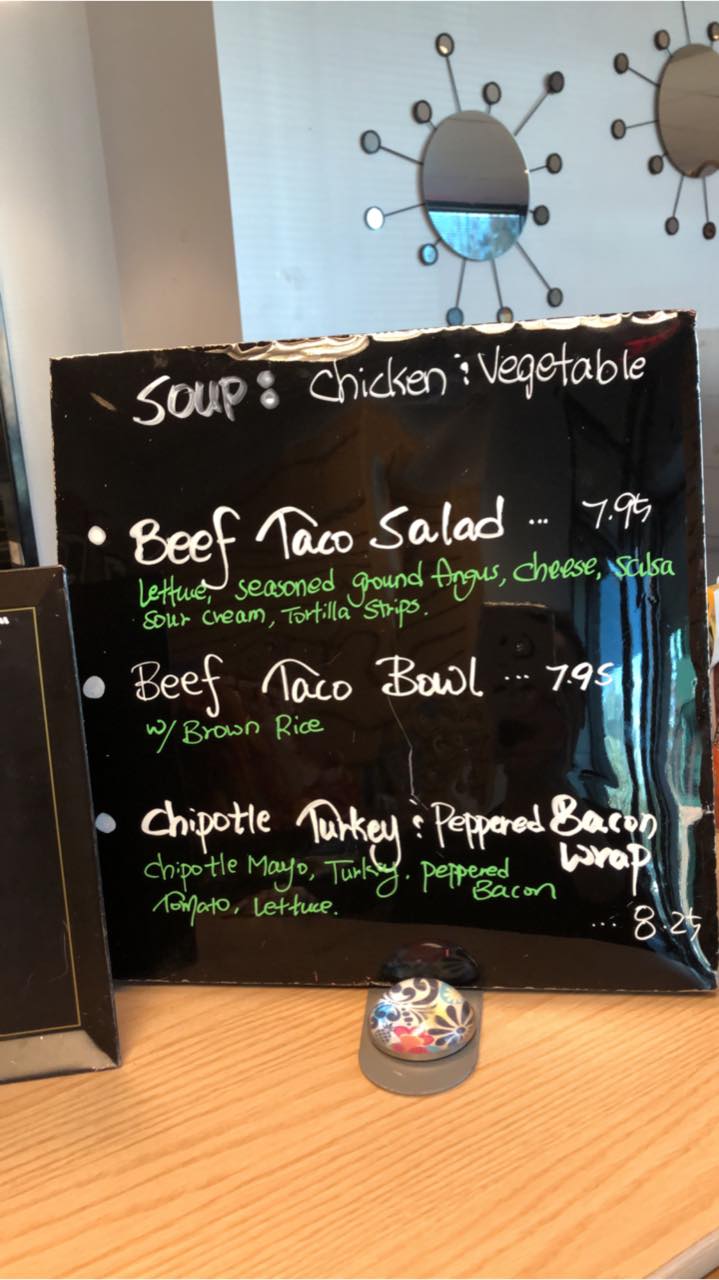 Soup: Chicken : Vegetable
Beef Taco Salad ... 7.95
Lettuce, seasoned ground Angus, cheese, Salsa
Sour cream, Tortilla Strips.
Beef Taco Bowl ... 7.95
w/ Brown Rice
Chipotle Turkey : Peppered Bacon
Wrap
Chipotle Mayo, Turkey, peppered
Bacon
Tomato, Lettuce.
... 8.25